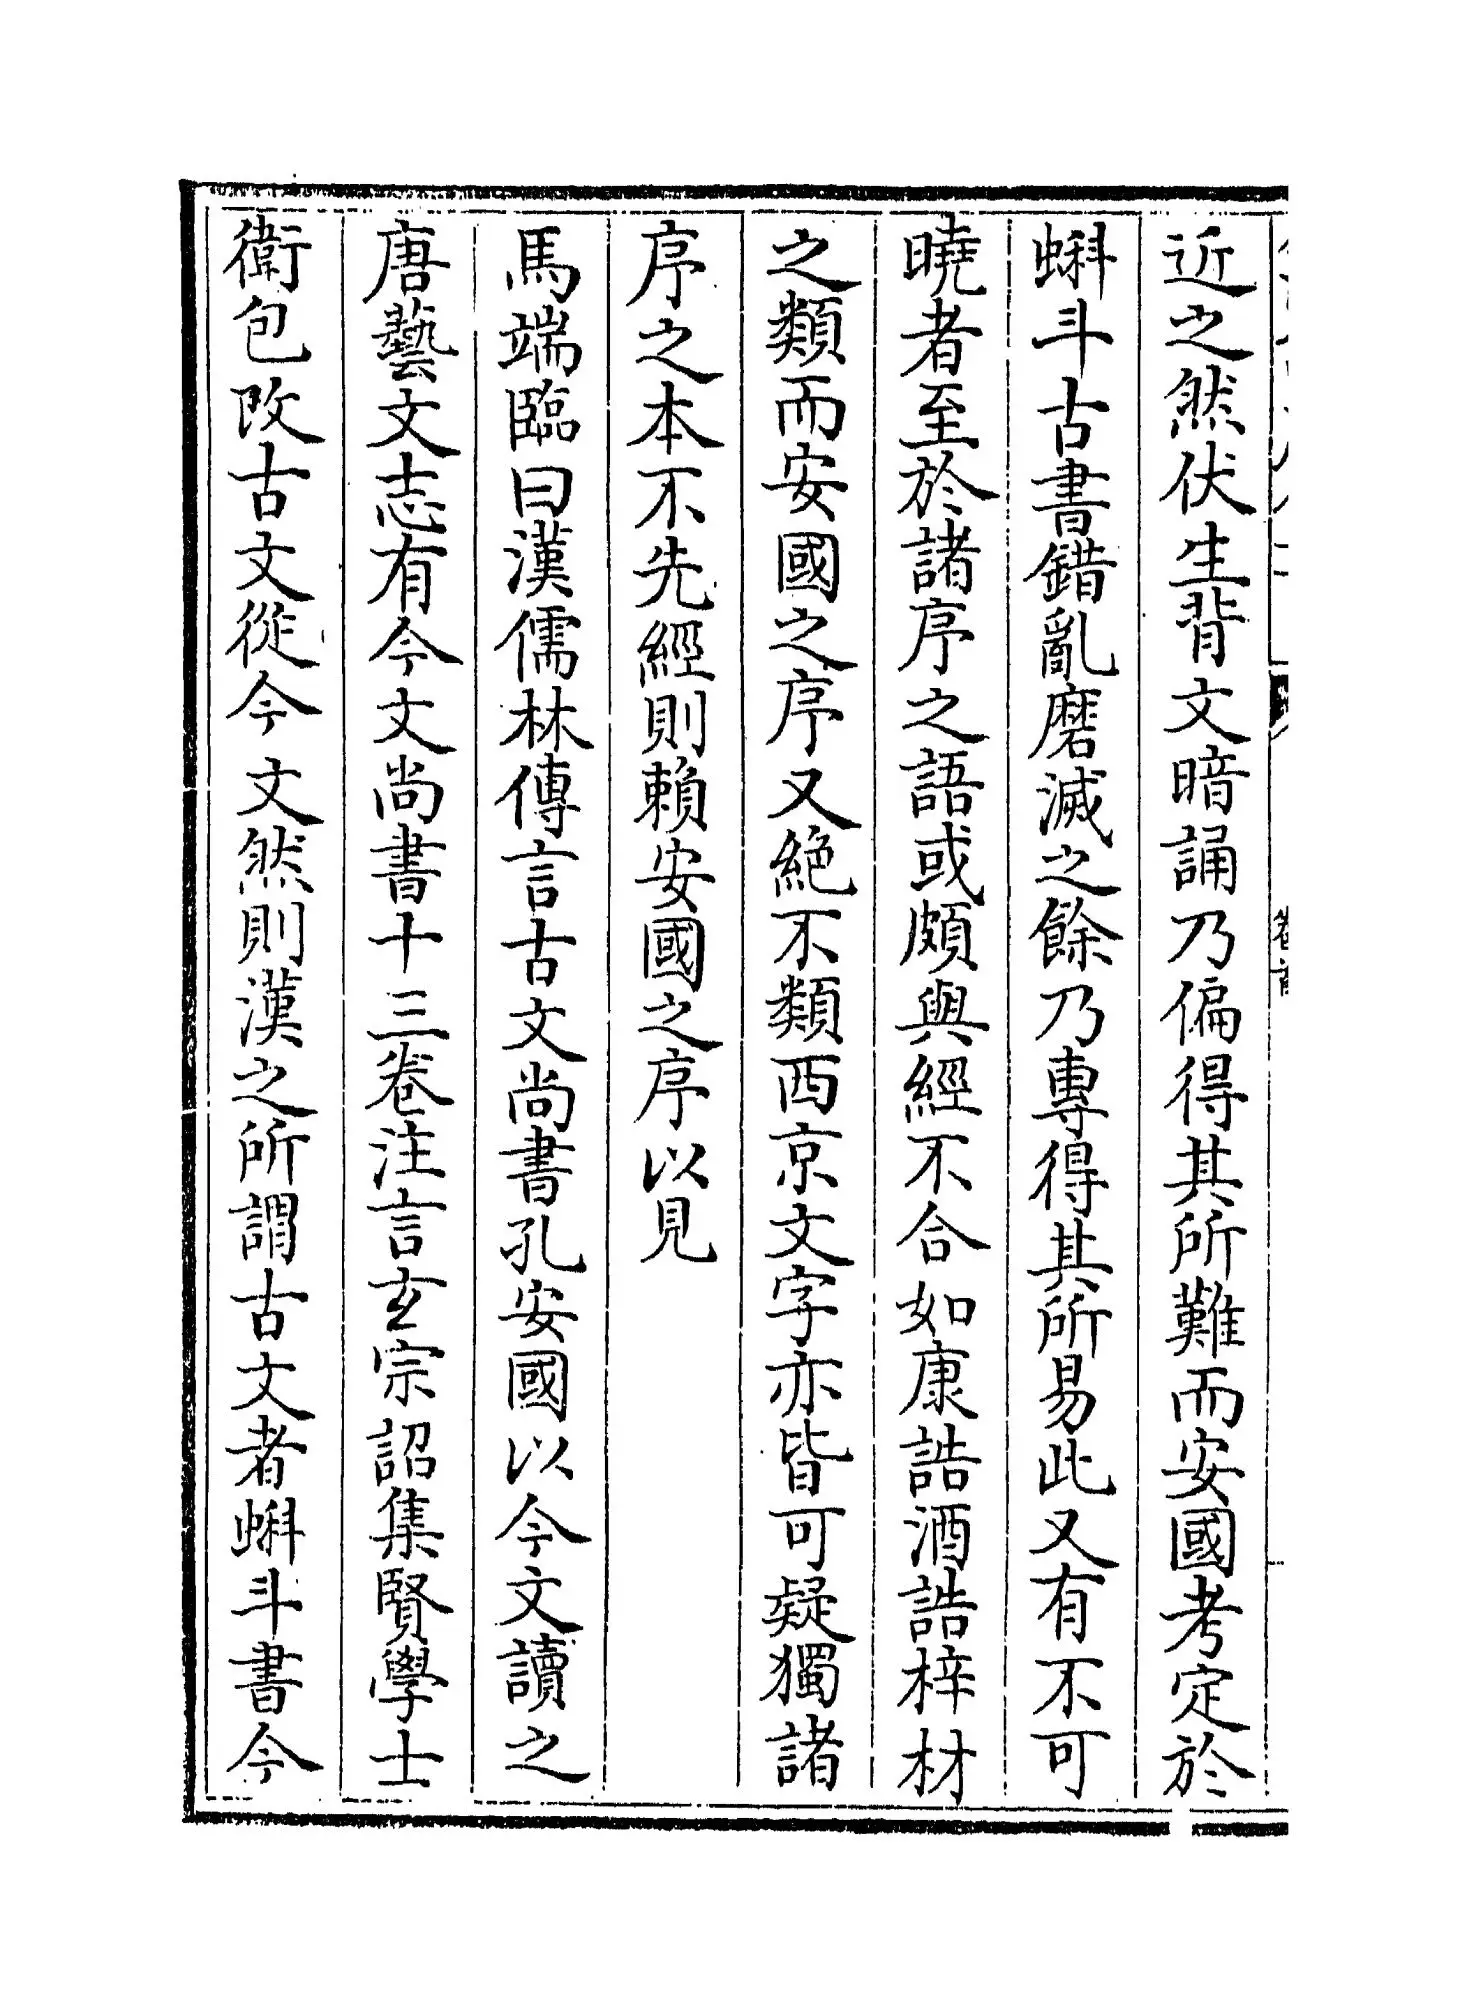 近之然伏生背文暗誦乃偏得其所難而安國考定於
蝌斗古書錯亂磨滅之餘乃專得其所易此又有不可
曉者至於諸序之語或頗與經不合如康誥酒誥梓材
之類而安國之序又絶不類西京文字亦皆可疑獨諸
序之本不先經則賴安國之序以見
馬端臨曰漢儒林傳言古文尚書孔安國以今文讀之
唐藝文志有今文尚書十三卷注言玄宗詔集賢學士
衛包改古文從今文然則漢之所謂古文者蝌斗書今